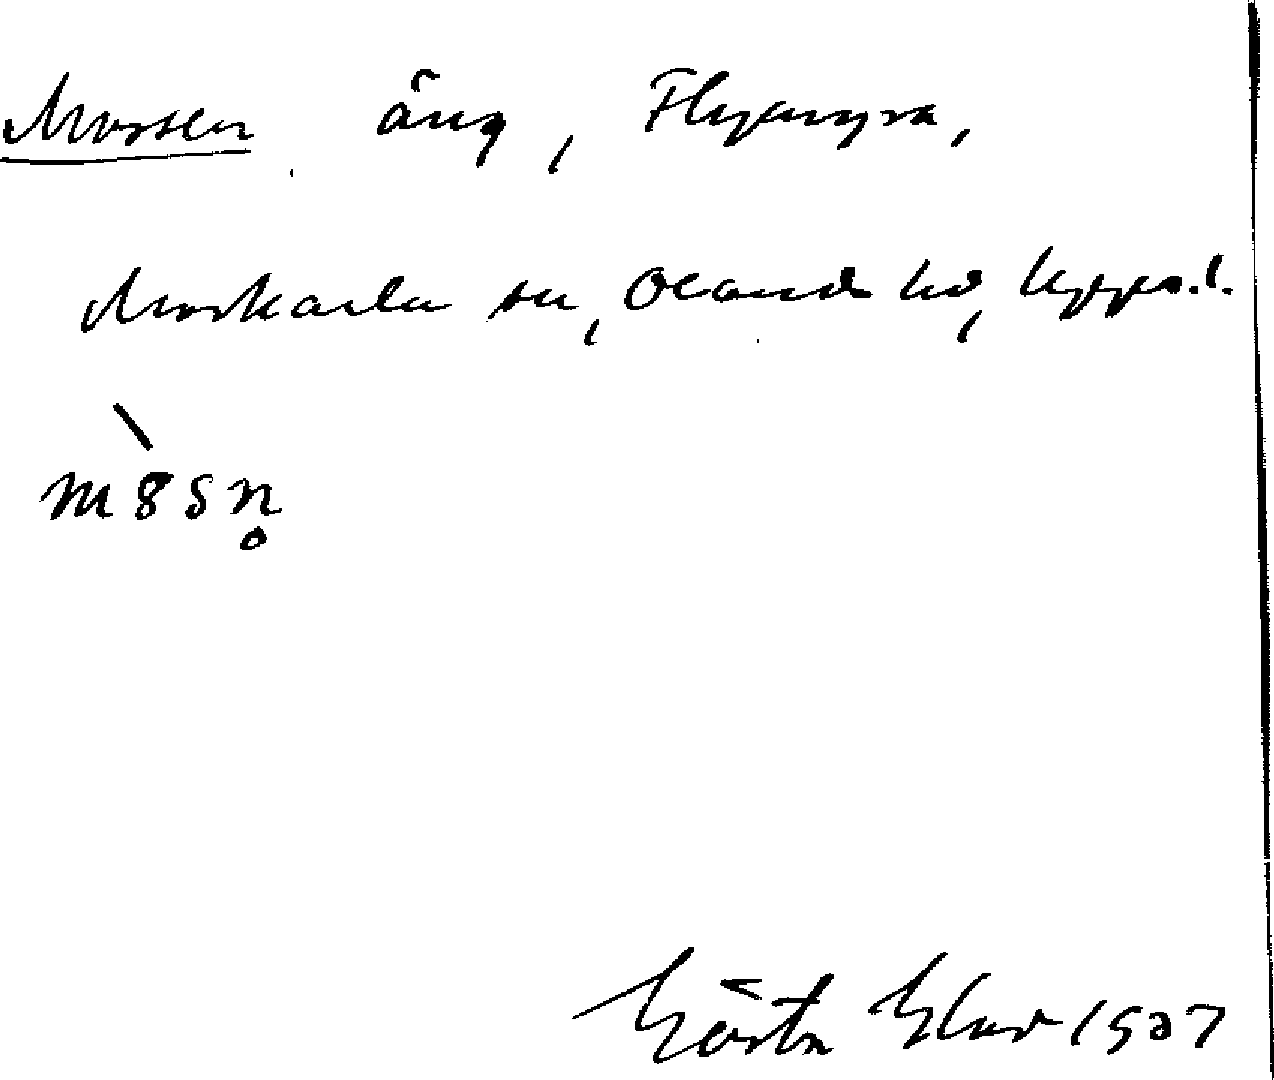 Mossen äng, Flymyra,
Morkarla sn, Olands hd, Uppl.
m8sn̥
Gösta 1937